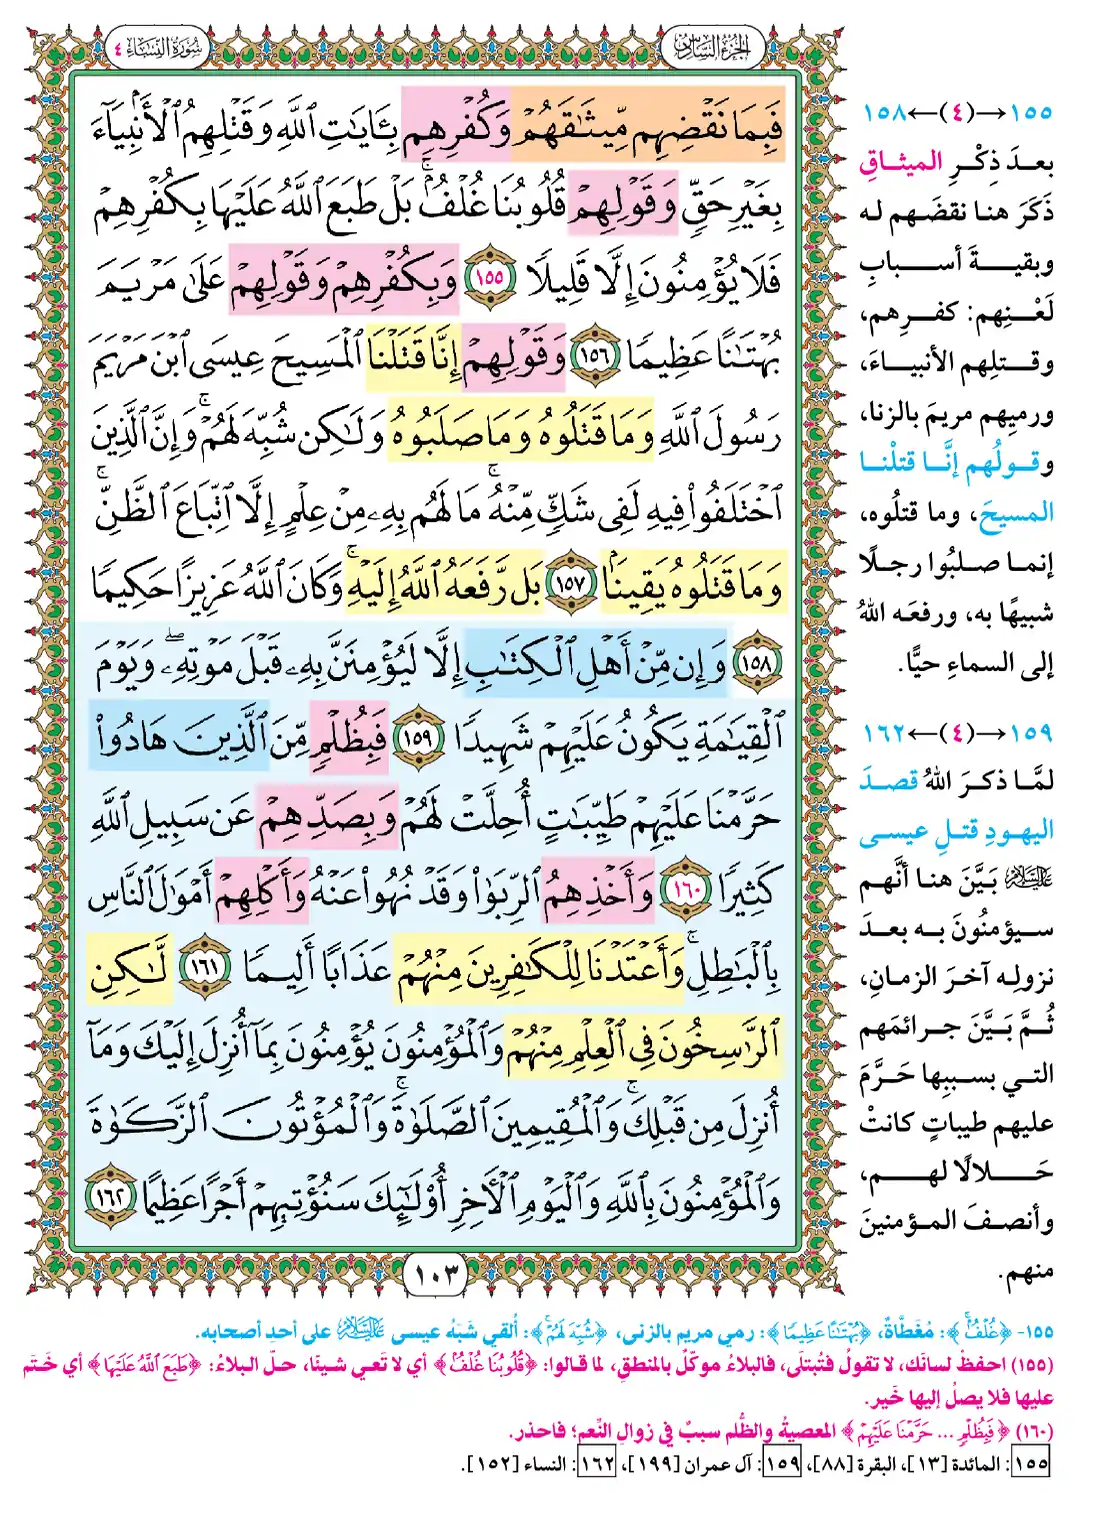 الجزء السادس
سورة النساء ٤
فَبِمَا نَقْضِهِم مِّيثَٰقَهُمْ وَكُفْرِهِم بِـَٔايَٰتِ ٱللَّهِ وَقَتْلِهِمُ ٱلْأَنۢبِيَآءَ
بِغَيْرِ حَقٍّ وَقَوْلِهِمْ قُلُوبُنَا غُلْفٌۢ ۚ بَلْ طَبَعَ ٱللَّهُ عَلَيْهَا بِكُفْرِهِمْ
فَلَا يُؤْمِنُونَ إِلَّا قَلِيلًا ١٥٥ وَبِكُفْرِهِمْ وَقَوْلِهِمْ عَلَىٰ مَرْيَمَ
بُهْتَٰنًا عَظِيمًا ١٥٦ وَقَوْلِهِمْ إِنَّا قَتَلْنَا ٱلْمَسِيحَ عِيسَى ٱبْنَ مَرْيَمَ
رَسُولَ ٱللَّهِ وَمَا قَتَلُوهُ وَمَا صَلَبُوهُ وَلَٰكِن شُبِّهَ لَهُمْ ۚ وَإِنَّ ٱلَّذِينَ
ٱخْتَلَفُوا۟ فِيهِ لَفِى شَكٍّ مِّنْهُ ۚ مَا لَهُم بِهِۦ مِنْ عِلْمٍ إِلَّا ٱتِّبَاعَ ٱلظَّنِّ ۚ
وَمَا قَتَلُوهُ يَقِينًۢا ١٥٧ بَل رَّفَعَهُ ٱللَّهُ إِلَيْهِ ۚ وَكَانَ ٱللَّهُ عَزِيزًا حَكِيمًا
١٥٨ وَإِن مِّنْ أَهْلِ ٱلْكِتَٰبِ إِلَّا لَيُؤْمِنَنَّ بِهِۦ قَبْلَ مَوْتِهِۦ ۖ وَيَوْمَ
ٱلْقِيَٰمَةِ يَكُونُ عَلَيْهِمْ شَهِيدًا ١٥٩ فَبِظُلْمٍ مِّنَ ٱلَّذِينَ هَادُوا۟
حَرَّمْنَا عَلَيْهِمْ طَيِّبَٰتٍ أُحِلَّتْ لَهُمْ وَبِصَدِّهِمْ عَن سَبِيلِ ٱللَّهِ
كَثِيرًا ١٦٠ وَأَخْذِهِمُ ٱلرِّبَوٰا۟ وَقَدْ نُهُوا۟ عَنْهُ وَأَكْلِهِمْ أَمْوَٰلَ ٱلنَّاسِ
بِٱلْبَٰطِلِ ۚ وَأَعْتَدْنَا لِلْكَٰفِرِينَ مِنْهُمْ عَذَابًا أَلِيمًا ١٦١ لَّٰكِنِ
ٱلرَّٰسِخُونَ فِى ٱلْعِلْمِ مِنْهُمْ وَٱلْمُؤْمِنُونَ يُؤْمِنُونَ بِمَآ أُنزِلَ إِلَيْكَ وَمَآ
أُنزِلَ مِن قَبْلِكَ ۚ وَٱلْمُقِيمِينَ ٱلصَّلَوٰةَ ۚ وَٱلْمُؤْتُونَ ٱلزَّكَوٰةَ
وَٱلْمُؤْمِنُونَ بِٱللَّهِ وَٱلْيَوْمِ ٱلْأَخِرِ أُو۟لَٰٓئِكَ سَنُؤْتِيهِمْ أَجْرًا عَظِيمًا ١٦٢
١٠٣
١٥٥→(٤)←١٥٨
بعدَ ذِكْرِ الميثاقِ
ذَكَرَ هنا نقضَهم له
وبقيةَ أسبابِ
لَعْنِهم: كفرِهم،
وقتلِهم الأنبياءَ،
ورميِهم مريمَ بالزنا،
وقولُهم إنَّا قتلْنا
المسيحَ، وما قتلُوه،
إنما صلبُوا رجلًا
شبيهًا به، ورفعَه اللهُ
إلى السماءِ حيًّا.
١٥٩→(٤)←١٦٢
لمَّا ذكرَ اللهُ قصدَ
اليهودِ قتلِ عيسى
عليه السلام بَيَّنَ هنا أنَّهم
سيؤمنُون به بعدَ
نزولِه آخرَ الزمانِ،
ثُمَّ بَيَّنَ جرائمَهم
التي بسببِها حَرَّمَ
عليهم طيباتٍ كانتْ
حَلالًا لهم،
وأنصفَ المؤمنينَ
منهم.
١٥٥- ﴿غُلْفٌۢ ۚ﴾: مُغَطَّاةٌ، ﴿بُهْتَٰنًا عَظِيمًا﴾: رمي مريم بالزنى، ﴿شُبِّهَ لَهُمْ ۚ﴾: أُلقي شَبَهُ عيسى عليه السلام على أحدِ أصحابه.
(١٥٥) احفظْ لسانَك، لا تقولُ فتُبتلَى، فالبلاءُ موكّلٌ بالمنطقِ، لما قالوا: ﴿قُلُوبُنَا غُلْفٌ﴾ أي لا تَعي شيئًا، حلّ البلاءُ: ﴿طَبَعَ ٱللَّهُ عَلَيْهَا﴾ أي خَتَمَ
عليها فلا يصلُ إليها خَير.
(١٦٠) ﴿فَبِظُلْمٍ ... حَرَّمْنَا عَلَيْهِمْ﴾ المعصيةُ والظُّلم سببٌ في زوالِ النِّعم؛ فاحذر.
١٥٥: المائدة [١٣]، البقرة [٨٨]، ١٥٩: آل عمران [١٩٩]، ١٦٢: النساء [١٥٢].